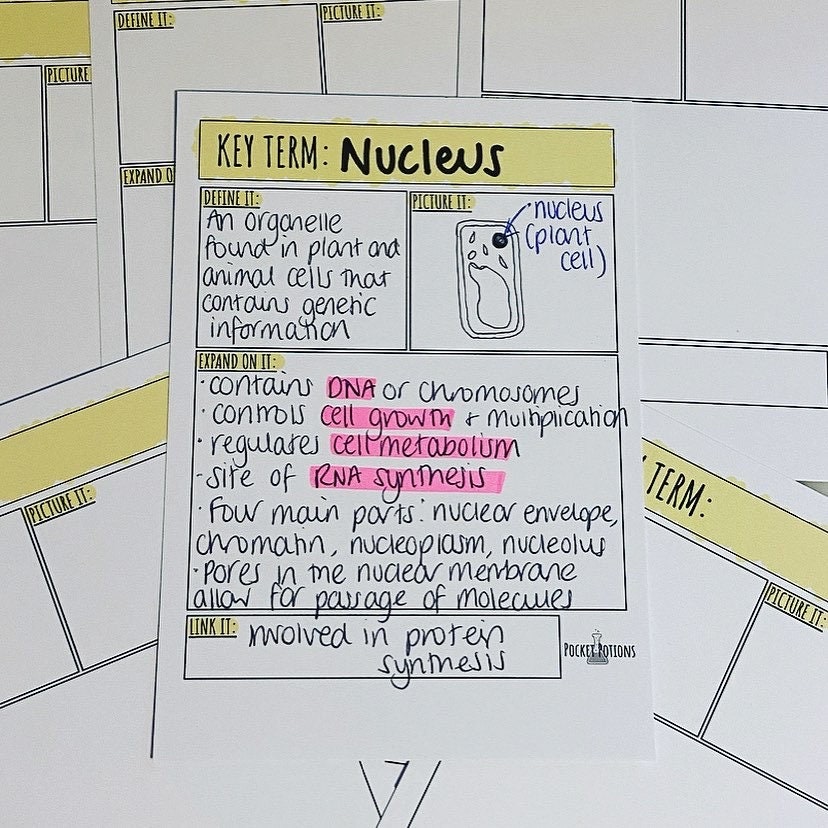 DEFINE IT:
PICTURE IT:
PICTURE
EXPAND O
KEY TERM: Nucleus
DEFINE IT:
An organelle
found in plant and
animal cells that
contains genetic
information
PICTURE IT:
nucleus
(plant
cell)
EXPAND ON IT:
• contains DNA or chromosomes
• controls cell growth + multiplication
• regulates cell metabolism
- site of RNA synthesis
• Four main parts: nuclear envelope,
chromatin, nucleoplasm, nucleolus
• Pores in the nuclear membrane
allow for passage of molecules
LINK IT: Involved in protein
synthesis
POCKET POTIONS
PICTURE IT:
TERM:
PICTURE IT: